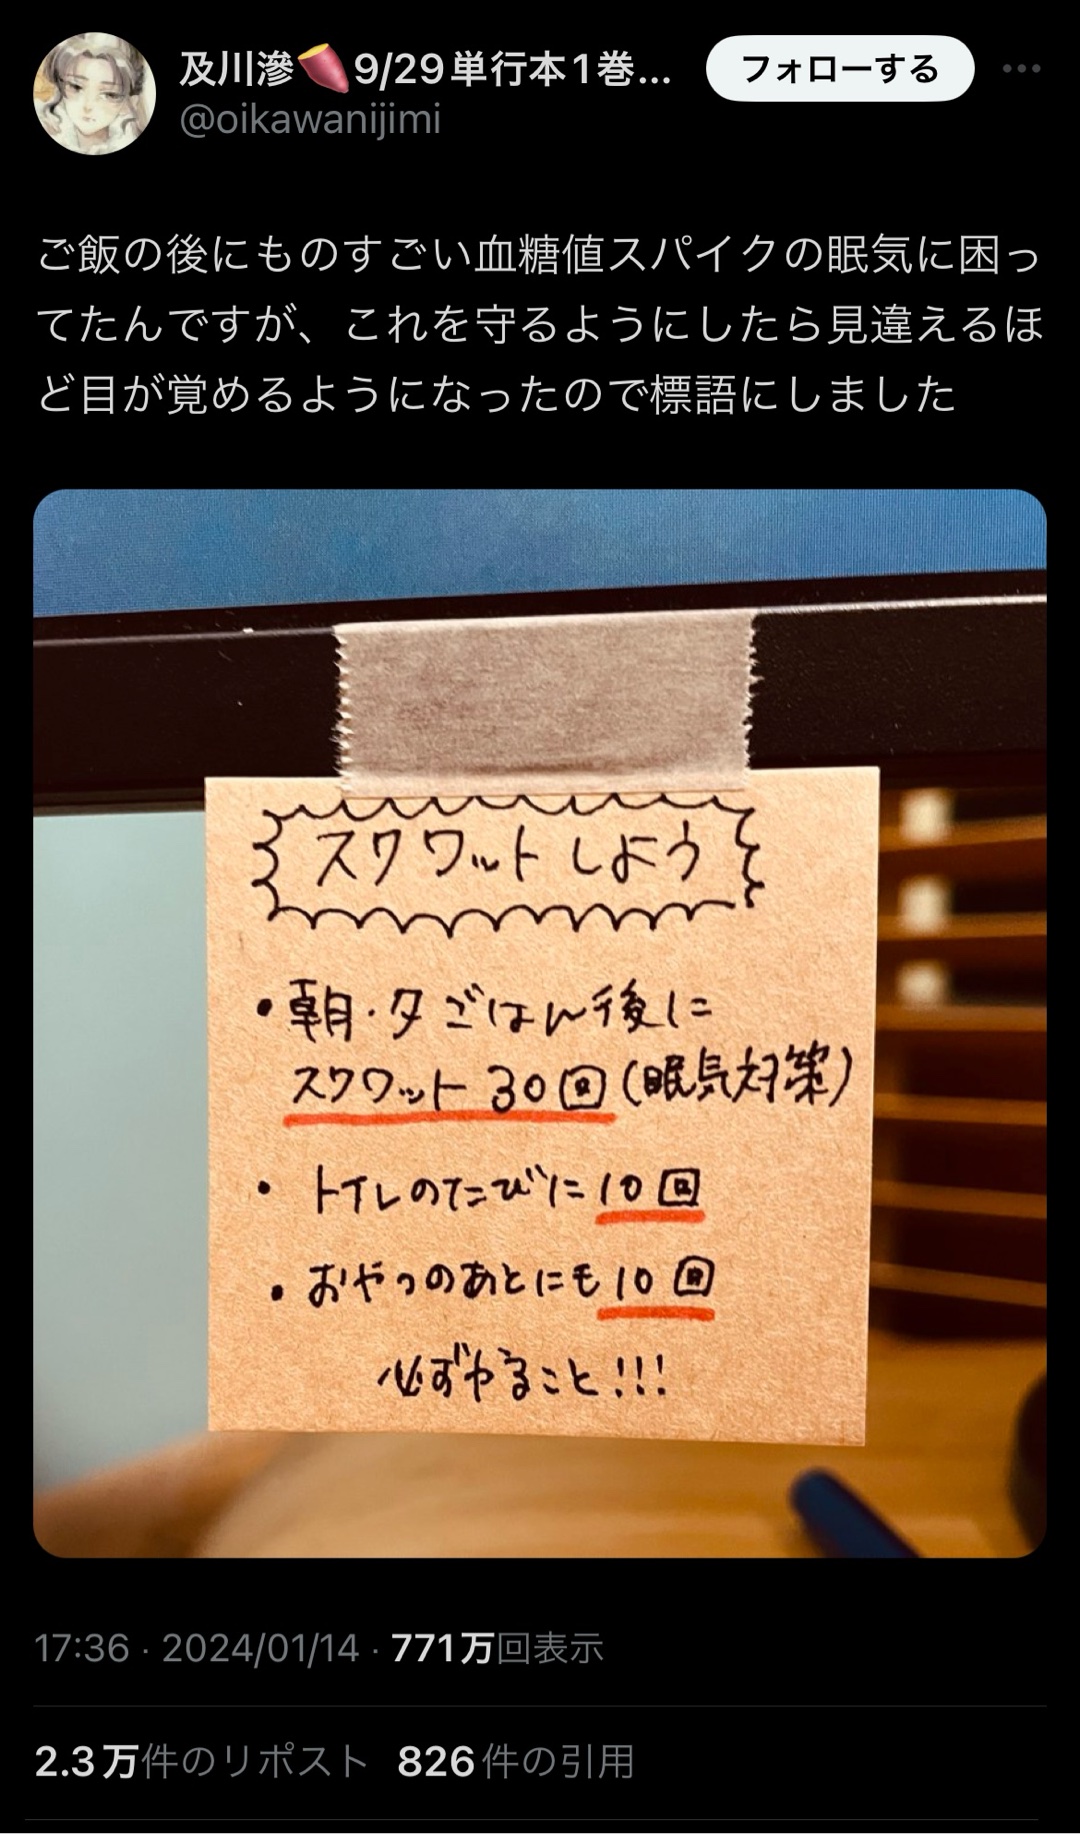 及川滲🍠9/29単行本1巻...
フォローする
@oikawanijimi
ご飯の後にものすごい血糖値スパイクの眠気に困っ
てたんですが、これを守るようにしたら見違えるほ
ど目が覚めるようになったので標語にしました
スクワットしよう
・朝・夕ごはん後に
スクワット30回(眠気対策)
・トイレのたびに10回
・おやつのあとにも10回
必ずやること!!!
17:36 · 2024/01/14 · 771万回表示
2.3万件のリポスト 826件の引用